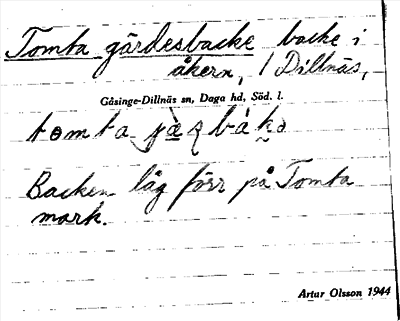 Tomta gärdesbacke backe i
åkern, i Dillnäs,
Gåsinge-Dillnäs sn, Daga hd, Söd. l.
tomta
Backen låg förr på Tomta
mark.
Artur Olsson 1944